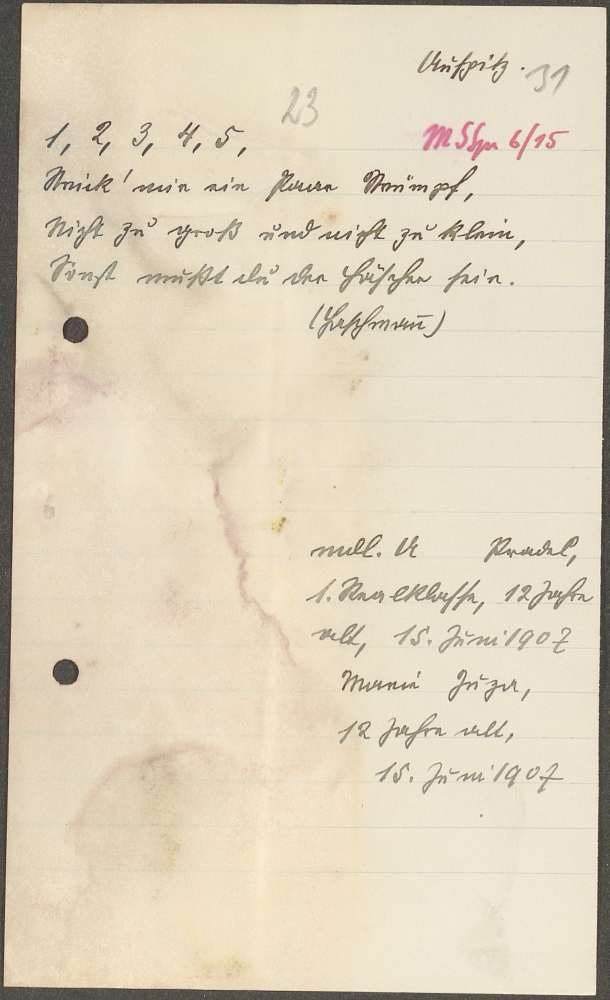 Auspitz. 31
23
1, 2, 3, 4, 5,
6/15
Strick' mir ein Paar Strümpf,
Nicht zu groß und nicht zu klein,
Sonst mußt du der Häscher sein.
(Haschmann)
mdl. A Pradel,
1. Realklasse, 12 Jahre
alt, 15. Juni 1907
Marie Juza,
12 Jahre alt,
15. Juni 1907